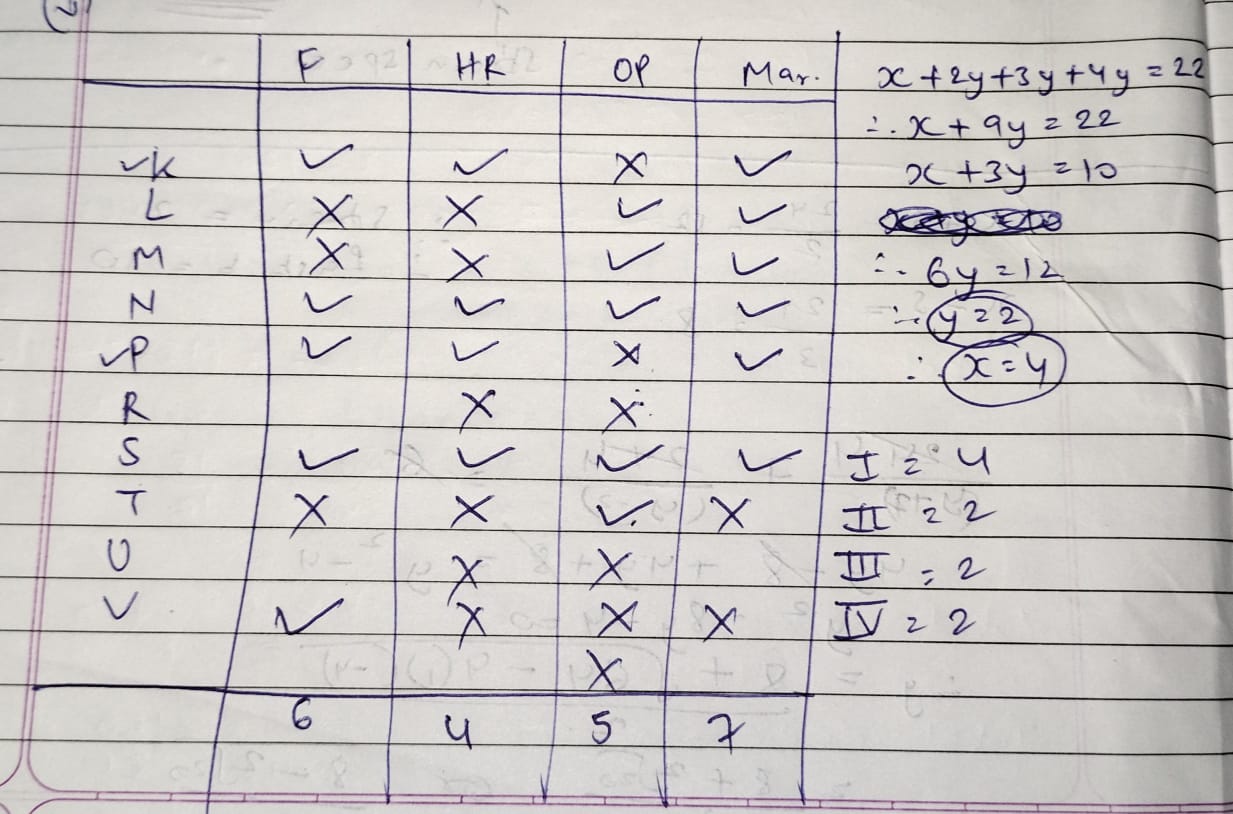 F HR OP Mar. x + 2y + 3y + 4y = 22
∴ x + 9y = 22
✓K ✓ ✓ × ✓ x + 3y = 10
L × × ✓ ✓
M × × ✓ ✓ ∴ 6y = 12
N ✓ ✓ ✓ ✓ ∴ y = 2
✓P ✓ ✓ × ✓ ∴ x = 4
R × ×
S ✓ ✓ ✓ ✓ I = 4
T × × ✓ × II = 2
U × × III = 2
V ✓ × × × IV = 2
×
6 4 5 7